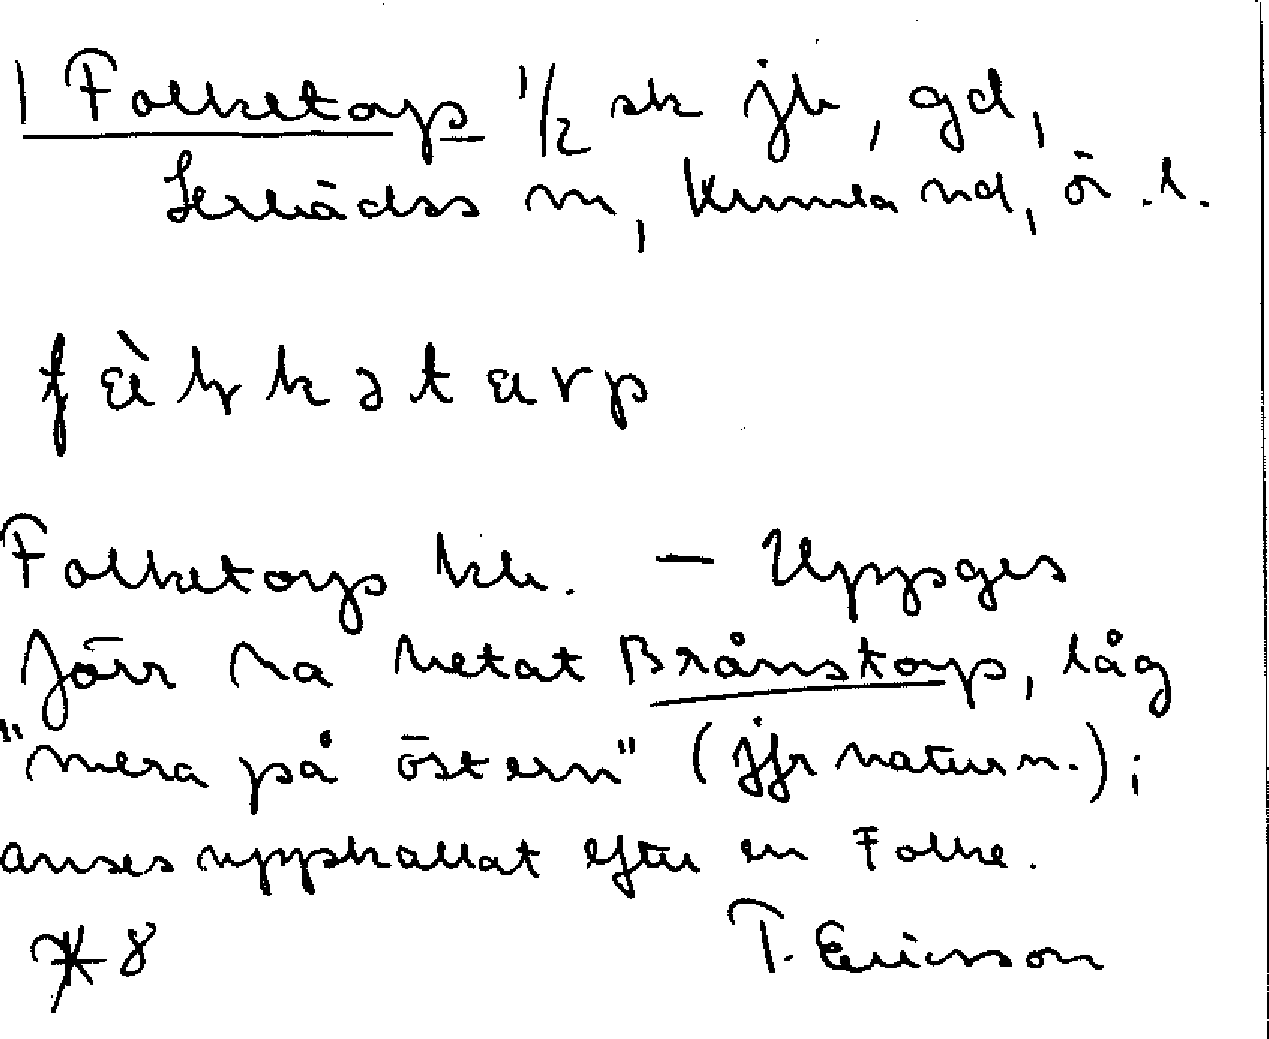 1 Folketorp 1/2 sk jb, gd,
m, Kumla hd, ör. l.
Folketorp kb. — Uppges
förr ha hetat Brånstorp, låg
"mera på östern" (jfr naturn.);
anses uppkallat efter en Folke.
* 8 T. Ericsson